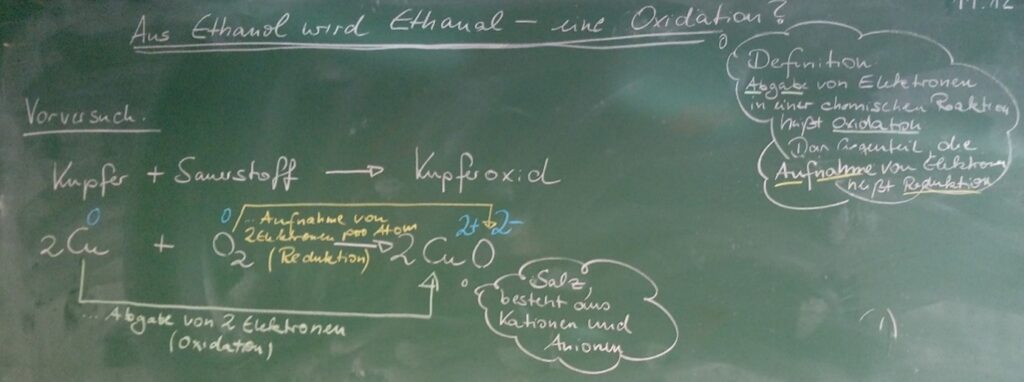 Aus Ethanol wird Ethanal – eine Oxidation?
Definition
Abgabe von Elektronen
in einer chemischen Reaktion
heißt Oxidation
Das Gegenteil, die
Aufnahme von Elektronen
heißt Reduktion
Vorversuch.
Kupfer + Sauerstoff → Kupferoxid
0 0 2+ 2-
2Cu + O2 → 2CuO
... Aufnahme von
2 Elektronen pro Atom
(Reduktion)
... Abgabe von 2 Elektronen
(Oxidation)
Salz,
besteht aus
Kationen und
Anionen
(1)